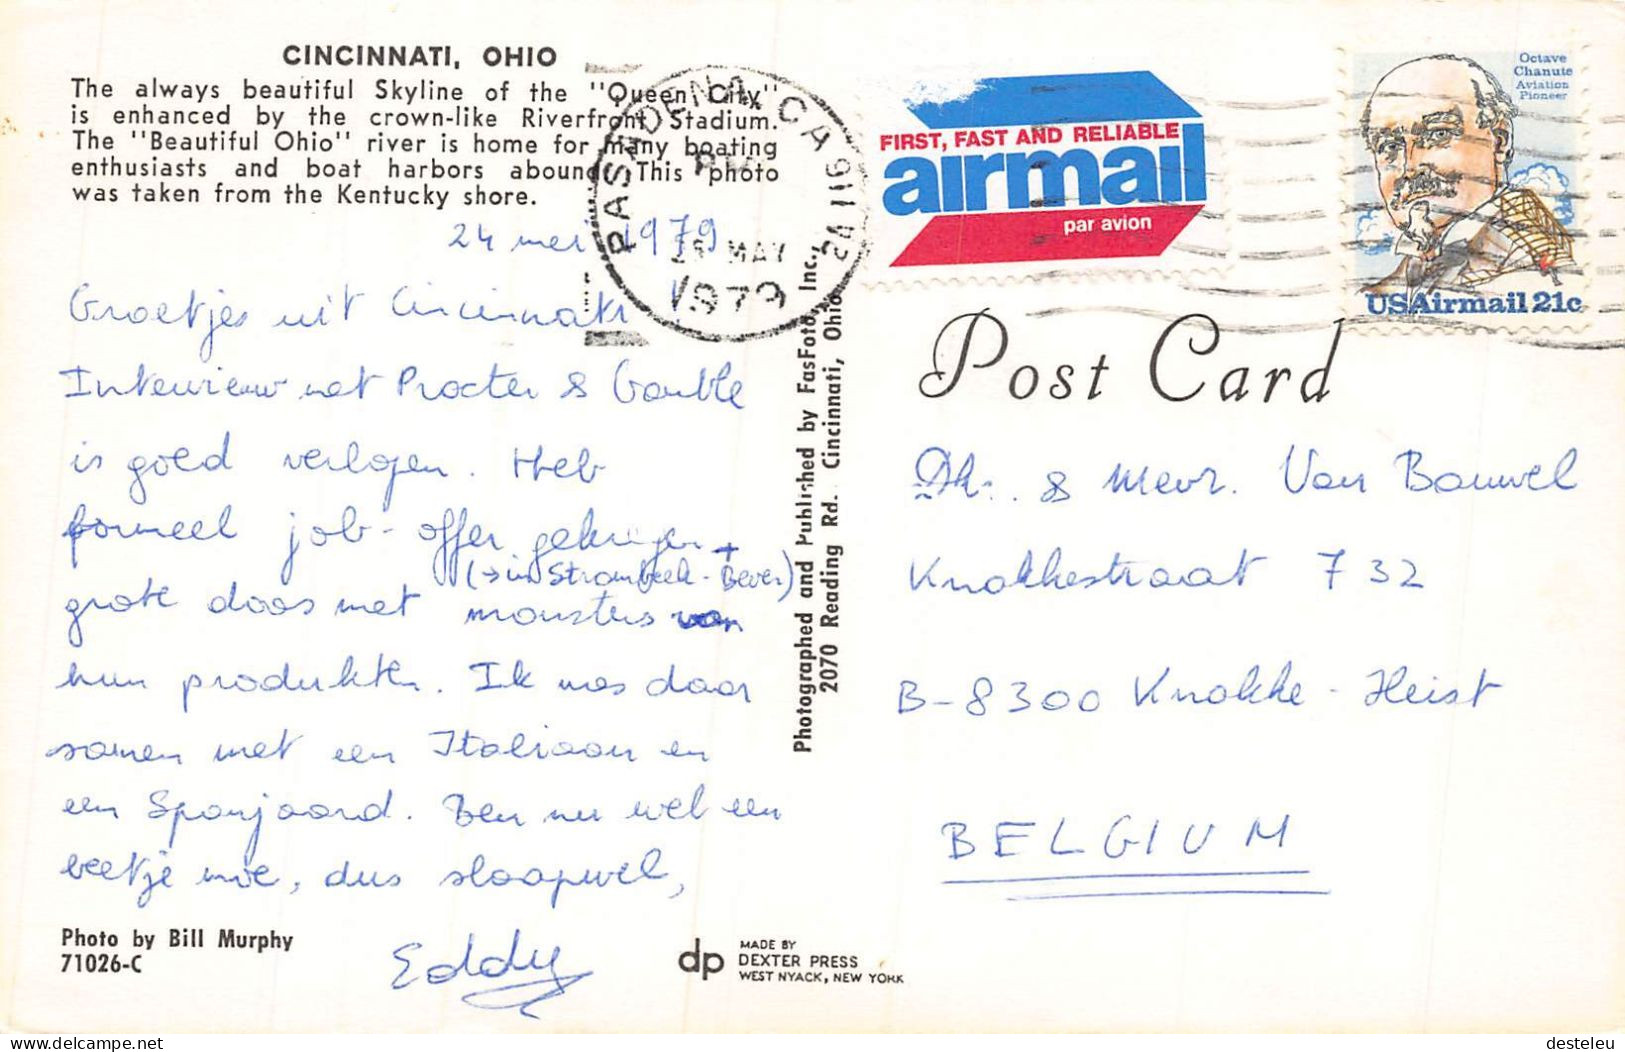 CINCINNATI, OHIO
The always beautiful Skyline of the "Queen City"
is enhanced by the crown-like Riverfront Stadium.
The "Beautiful Ohio" river is home for many boating
enthusiasts and boat harbors abound. This photo
was taken from the Kentucky shore.
24 mei 1979
Groetjes uit Cincinnati!
Interview met Procter & Gamble
is goed verlopen. Heb
formeel job-offer gekregen +
(→ in Strombeek-Bever)
grote doos met monsters van
hun produkten. Ik was daar
samen met een Italiaan en
een Spanjaard. Ben nu wel een
beetje moe, dus slaapwel,
Eddy
Photo by Bill Murphy
71026-C
dp
MADE BY
DEXTER PRESS
WEST NYACK, NEW YORK
Photographed and Published by FasFoto, Inc.,
2070 Reading Rd. Cincinnati, Ohio
PASADENA, CA 911
PM
MAY
1979
FIRST, FAST AND RELIABLE
airmail
par avion
Octave
Chanute
Aviation
Pioneer
USAirmail 21c
Post Card
Dh. & Mevr. Van Bouwel
Knokkestraat 732
B-8300 Knokke-Heist
BELGIUM
delcampe.net
desteleu